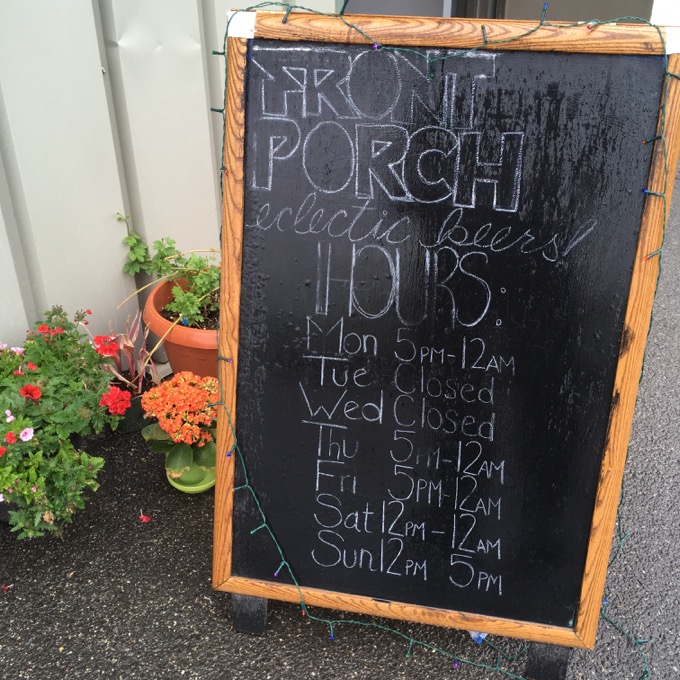 FRONT
PORCH
eclectic beers!
HOURS:
Mon 5PM-12AM
Tue Closed
Wed Closed
Thu 5PM-12AM
Fri 5PM-12AM
Sat 12PM-12AM
Sun 12PM 5PM